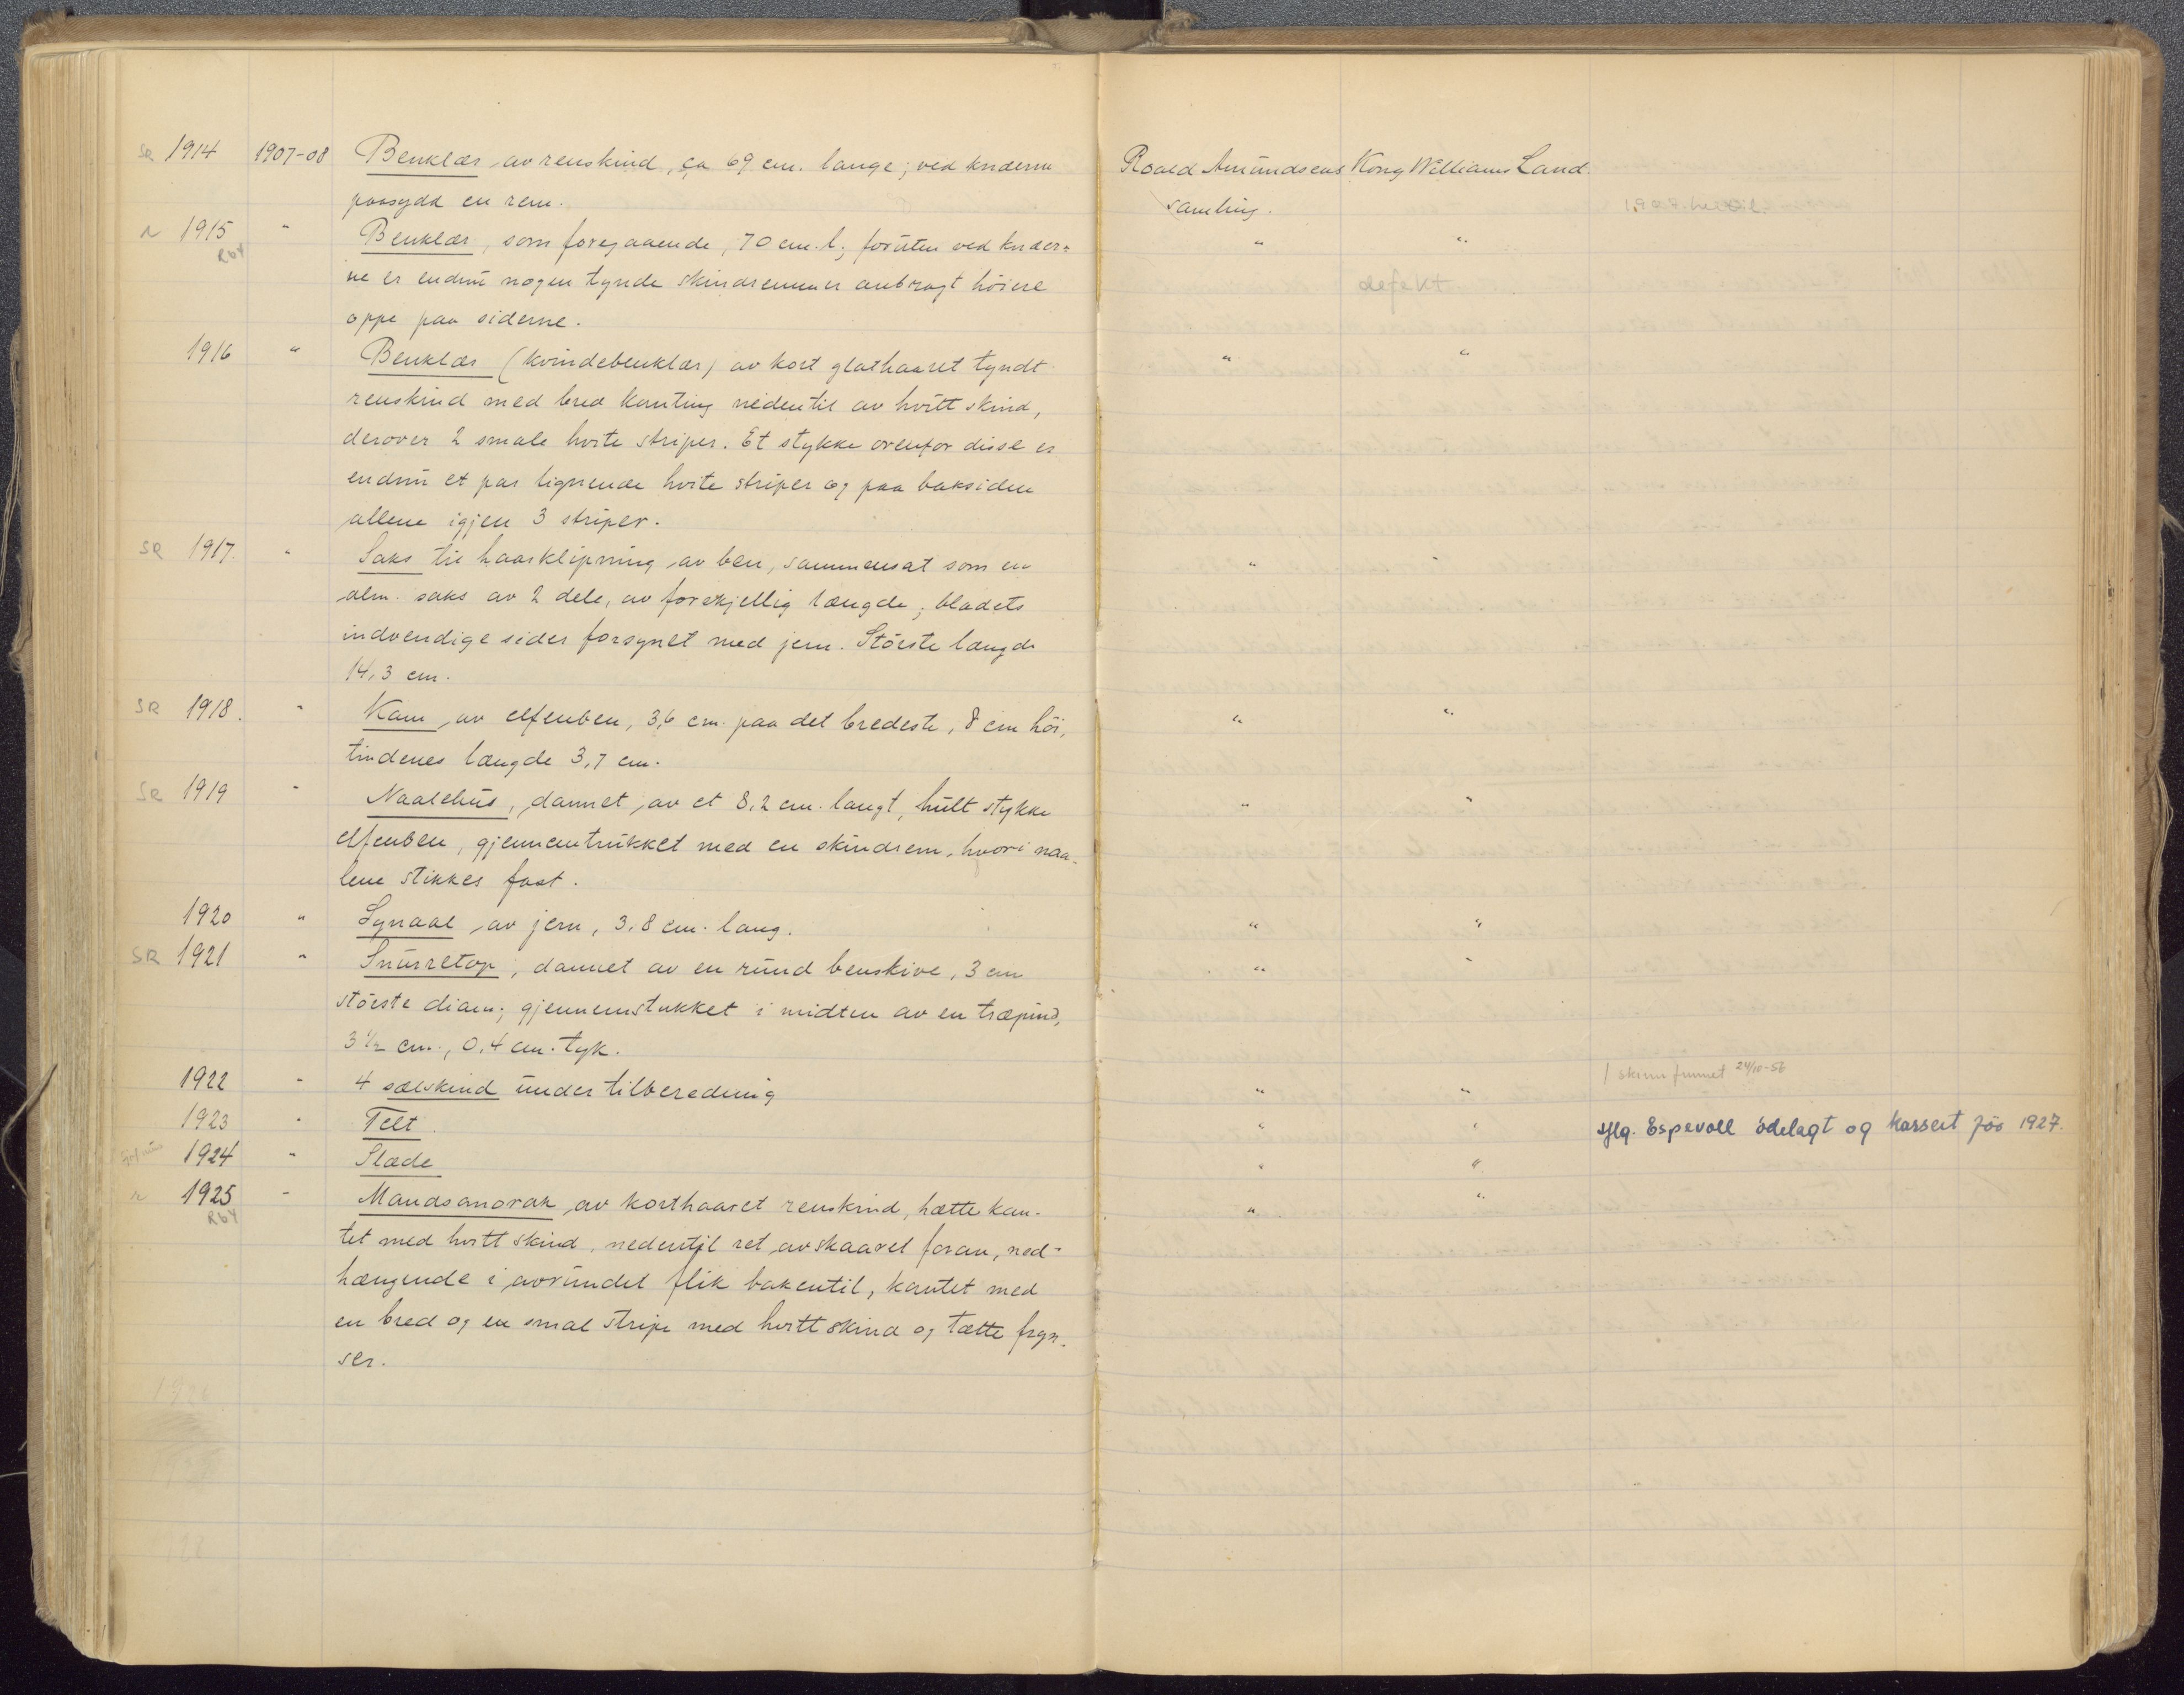 SR 1914 1907-08 Benklær av renskind, ca 69 cm. lange; ved knæerne Roald Amundsens Kong Williams Land.
paasydd en rem. samling.
1915 " Benklær, som foregaaende, 70 cm. l; foruten ved knæer= " "
R64
ne er endnu nogen tynde skindremmer anbragt höiere defekt.
oppe paa siderne.
1916 " Benklær (kvindebenklær) av kort glathaaret tyndt " "
renskind med bred kanting nedentil av hvitt skind,
derover 2 smale hvite striper. Et stykke ovenfor disse er
endnu et par lignende hvite striper og paa baksiden
allene igjen 3 striper.
SR 1917. " Saks til haarklipning av ben, sammensat som en " "
alm. saks av 2 dele, av forskjellig længde; bladets
indvendige sider forsynet med jern. Störste længde
14,3 cm.
SR 1918. " Kam av elfenben, 3,6 cm. paa det bredeste, 8 cm höi, " "
tindenes længde 3,7 cm.
SR 1919 " Naalehus, dannet av et 8,2 cm. langt, hult stykke " "
elfenben, gjennemtrukket med en skindrem, hvori naa-
lene stikkes fast.
1920 " Synaal av jern, 3,8 cm. lang. " "
SR 1921 " Snurretop, dannet av en rund benskive, 3 cm " "
störste diam; gjennemstukket i midten av en træpind,
3 1/2 cm., 0,4 cm. tyk.
1922 " 4 sælskind under tilberedning " " 1 skinn funnet 24/10-56
1923 " Telt. " " Espevoll ödelagt og kassert 1927.
1924 " Slæde " "
1925 " Mandsanorak av korthaaret renskind, hætte kan- " "
R64
tet med hvitt skind, nedentil ret avskaaret foran, ned-
hængende i avrundet flik bakentil, kantet med
en bred og en smal stripe med hvitt skind og tætte fryn-
ser.